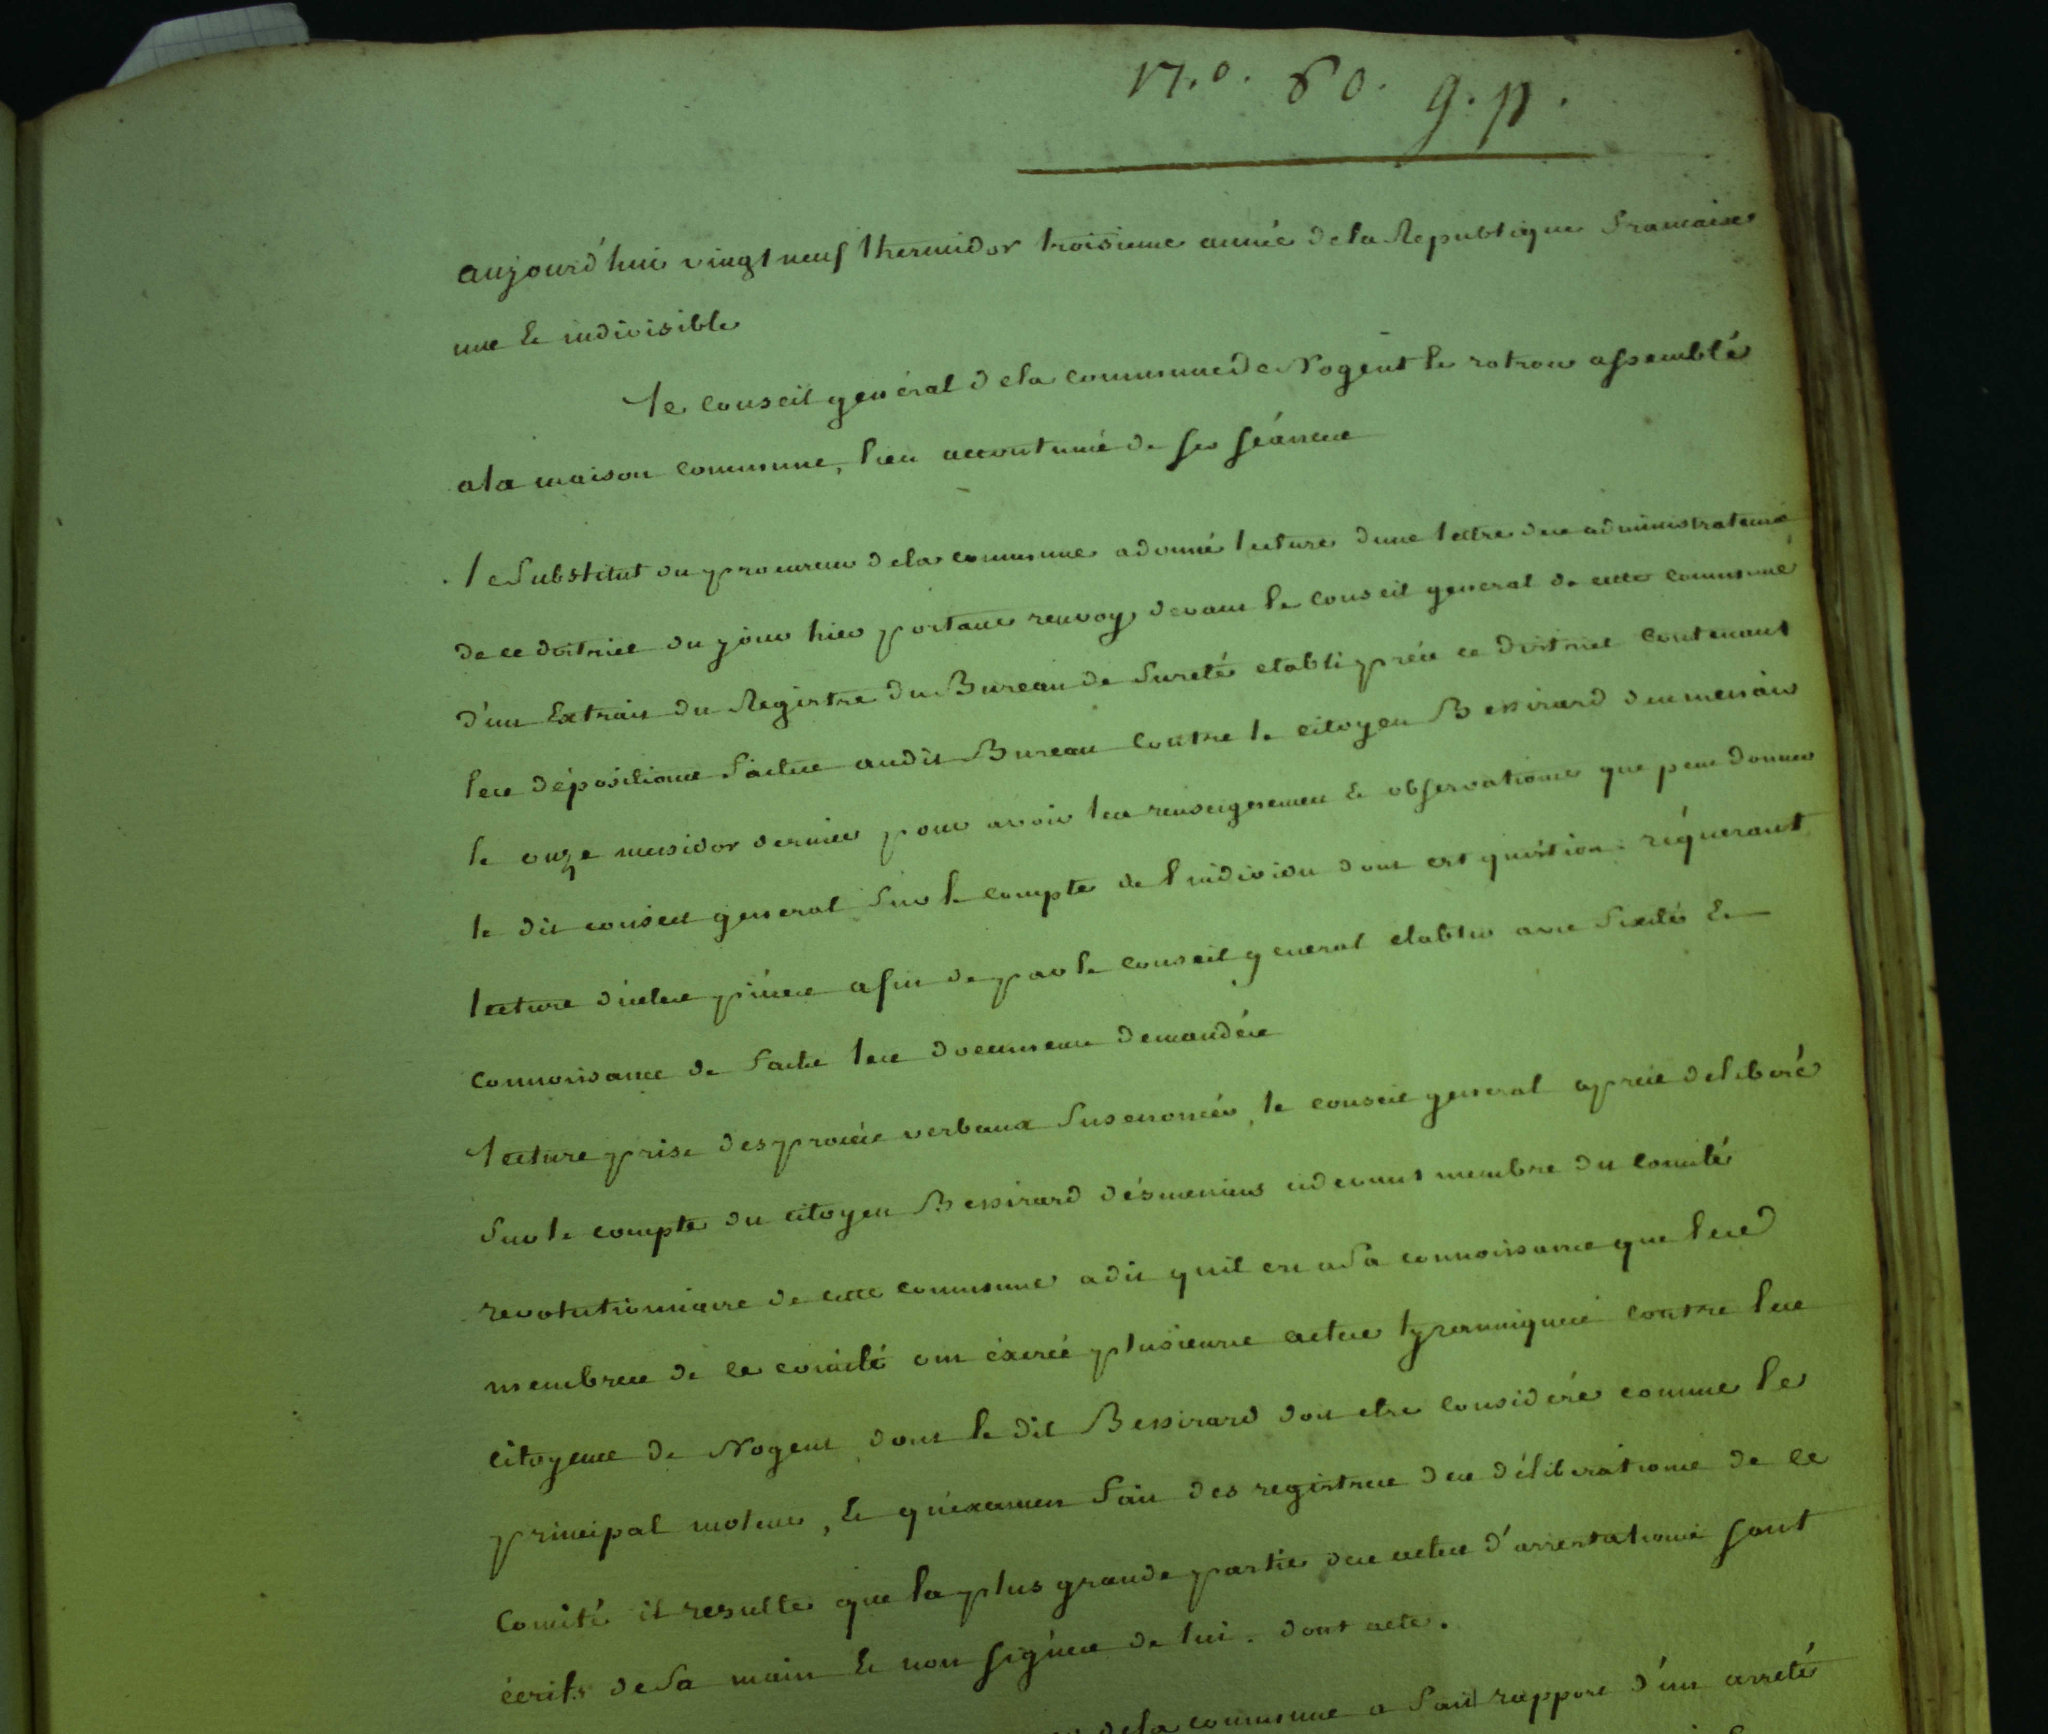 n.o. 80. g.p.
aujourd'hui vingt neuf thermidor troisieme année de la Republique francaise
une & indivisible
le conseil général de la commune de Nogent le rotrou assemblé
a la maison commune, lieu accoutumé de ses séances
le Substitut du procureur de la commune a donné lecture d'une lettre des administrateurs
de ce district du jour hier portant renvoy devant le conseil general de cette commune
d'un Extrait du Registre du Bureau de Sureté etabli près ce district contenant
les dépositions faites audit Bureau contre le citoyen Bessirard
le onze messidor dernier pour avoir les renseignemens & observations que peut donner
le dit conseil general sur le compte de l'individu dont est question. réquerant
lecture d'icelles pièces afin de par le conseil general etablir avec
connoissance de faite les documens demandés
lecture prise des procès verbaux susenoncés, le conseil general après deliberé
sur le compte du citoyen Bessirard désmenius cidevant membre du comité
revolutionnaire de cette commune a dit qu'il est a sa connoissance que les
membres de ce comité ont éxercé plusieurs actes tyranniques contre les
citoyens de Nogent dont le dit Bessirard doit etre considéré comme le
principal moteur, & qu'examen fait des registres des délibérations de ce
Comité il resulte que la plus grande partie des actes d'arrestations sont
écrits de sa main & non signés de lui. dont acte.
de la commune a fait rapport d'un arreté